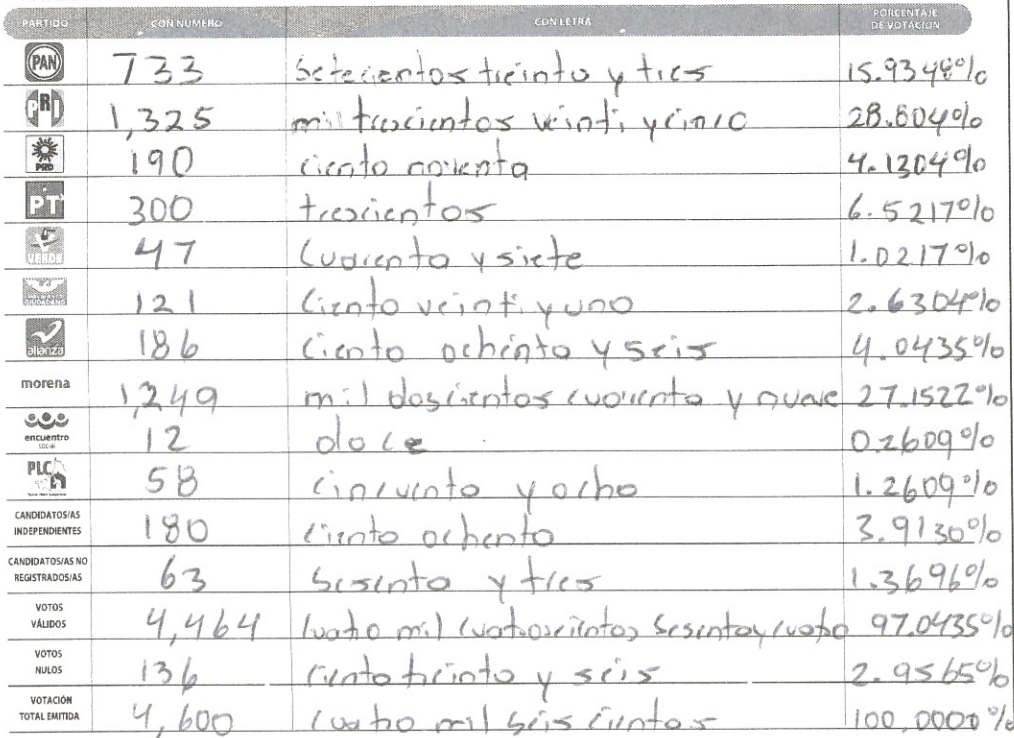 PARTIDO CON NÚMERO CON LETRA PORCENTAJE DE VOTACIÓN
PAN 733 Setecientos treinta y tres 15.9348%
PRI 1,325 mil trescientos veinti y cinco 28.804%
PRD 190 ciento noventa 4.1304%
PT 300 trescientos 6.5217%
VERDE 47 Cuarenta y siete 1.0217%
CIUDADANO 121 Ciento veinti y uno 2.6304%
alianza 186 Ciento ochenta y seis 4.0435%
morena 1,249 mil doscientos cuarenta y nueve 27.1522%
encuentro social 12 doce 0.2609%
PLC 58 Cincuenta y ocho 1.2609%
CANDIDATOS/AS INDEPENDIENTES 180 Ciento ochenta 3.9130%
CANDIDATOS/AS NO REGISTRADOS/AS 63 Sesenta y tres 1.3696%
VOTOS VÁLIDOS 4,464 Cuatro mil Cuatroscientos Sesenta y cuatro 97.0435%
VOTOS NULOS 136 Ciento treinta y seis 2.9565%
VOTACIÓN TOTAL EMITIDA 4,600 Cuatro mil seis cientos 100,0000%